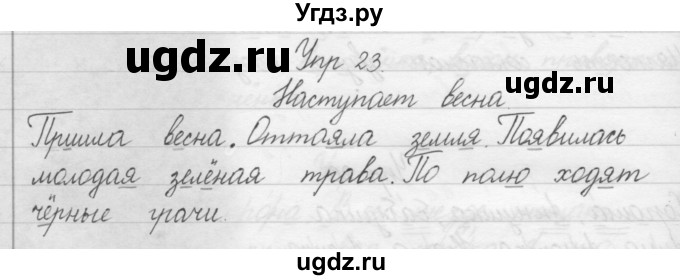 Угдз.ру
ugdz.ru ugdz.ru
Упр 23.
Наступает весна.
Пришла весна. Оттаяла земля. Появилась
молодая зелёная трава. По полю ходят
чёрные грачи.
ugdz.ru ugdz.ru
Угдз.ру